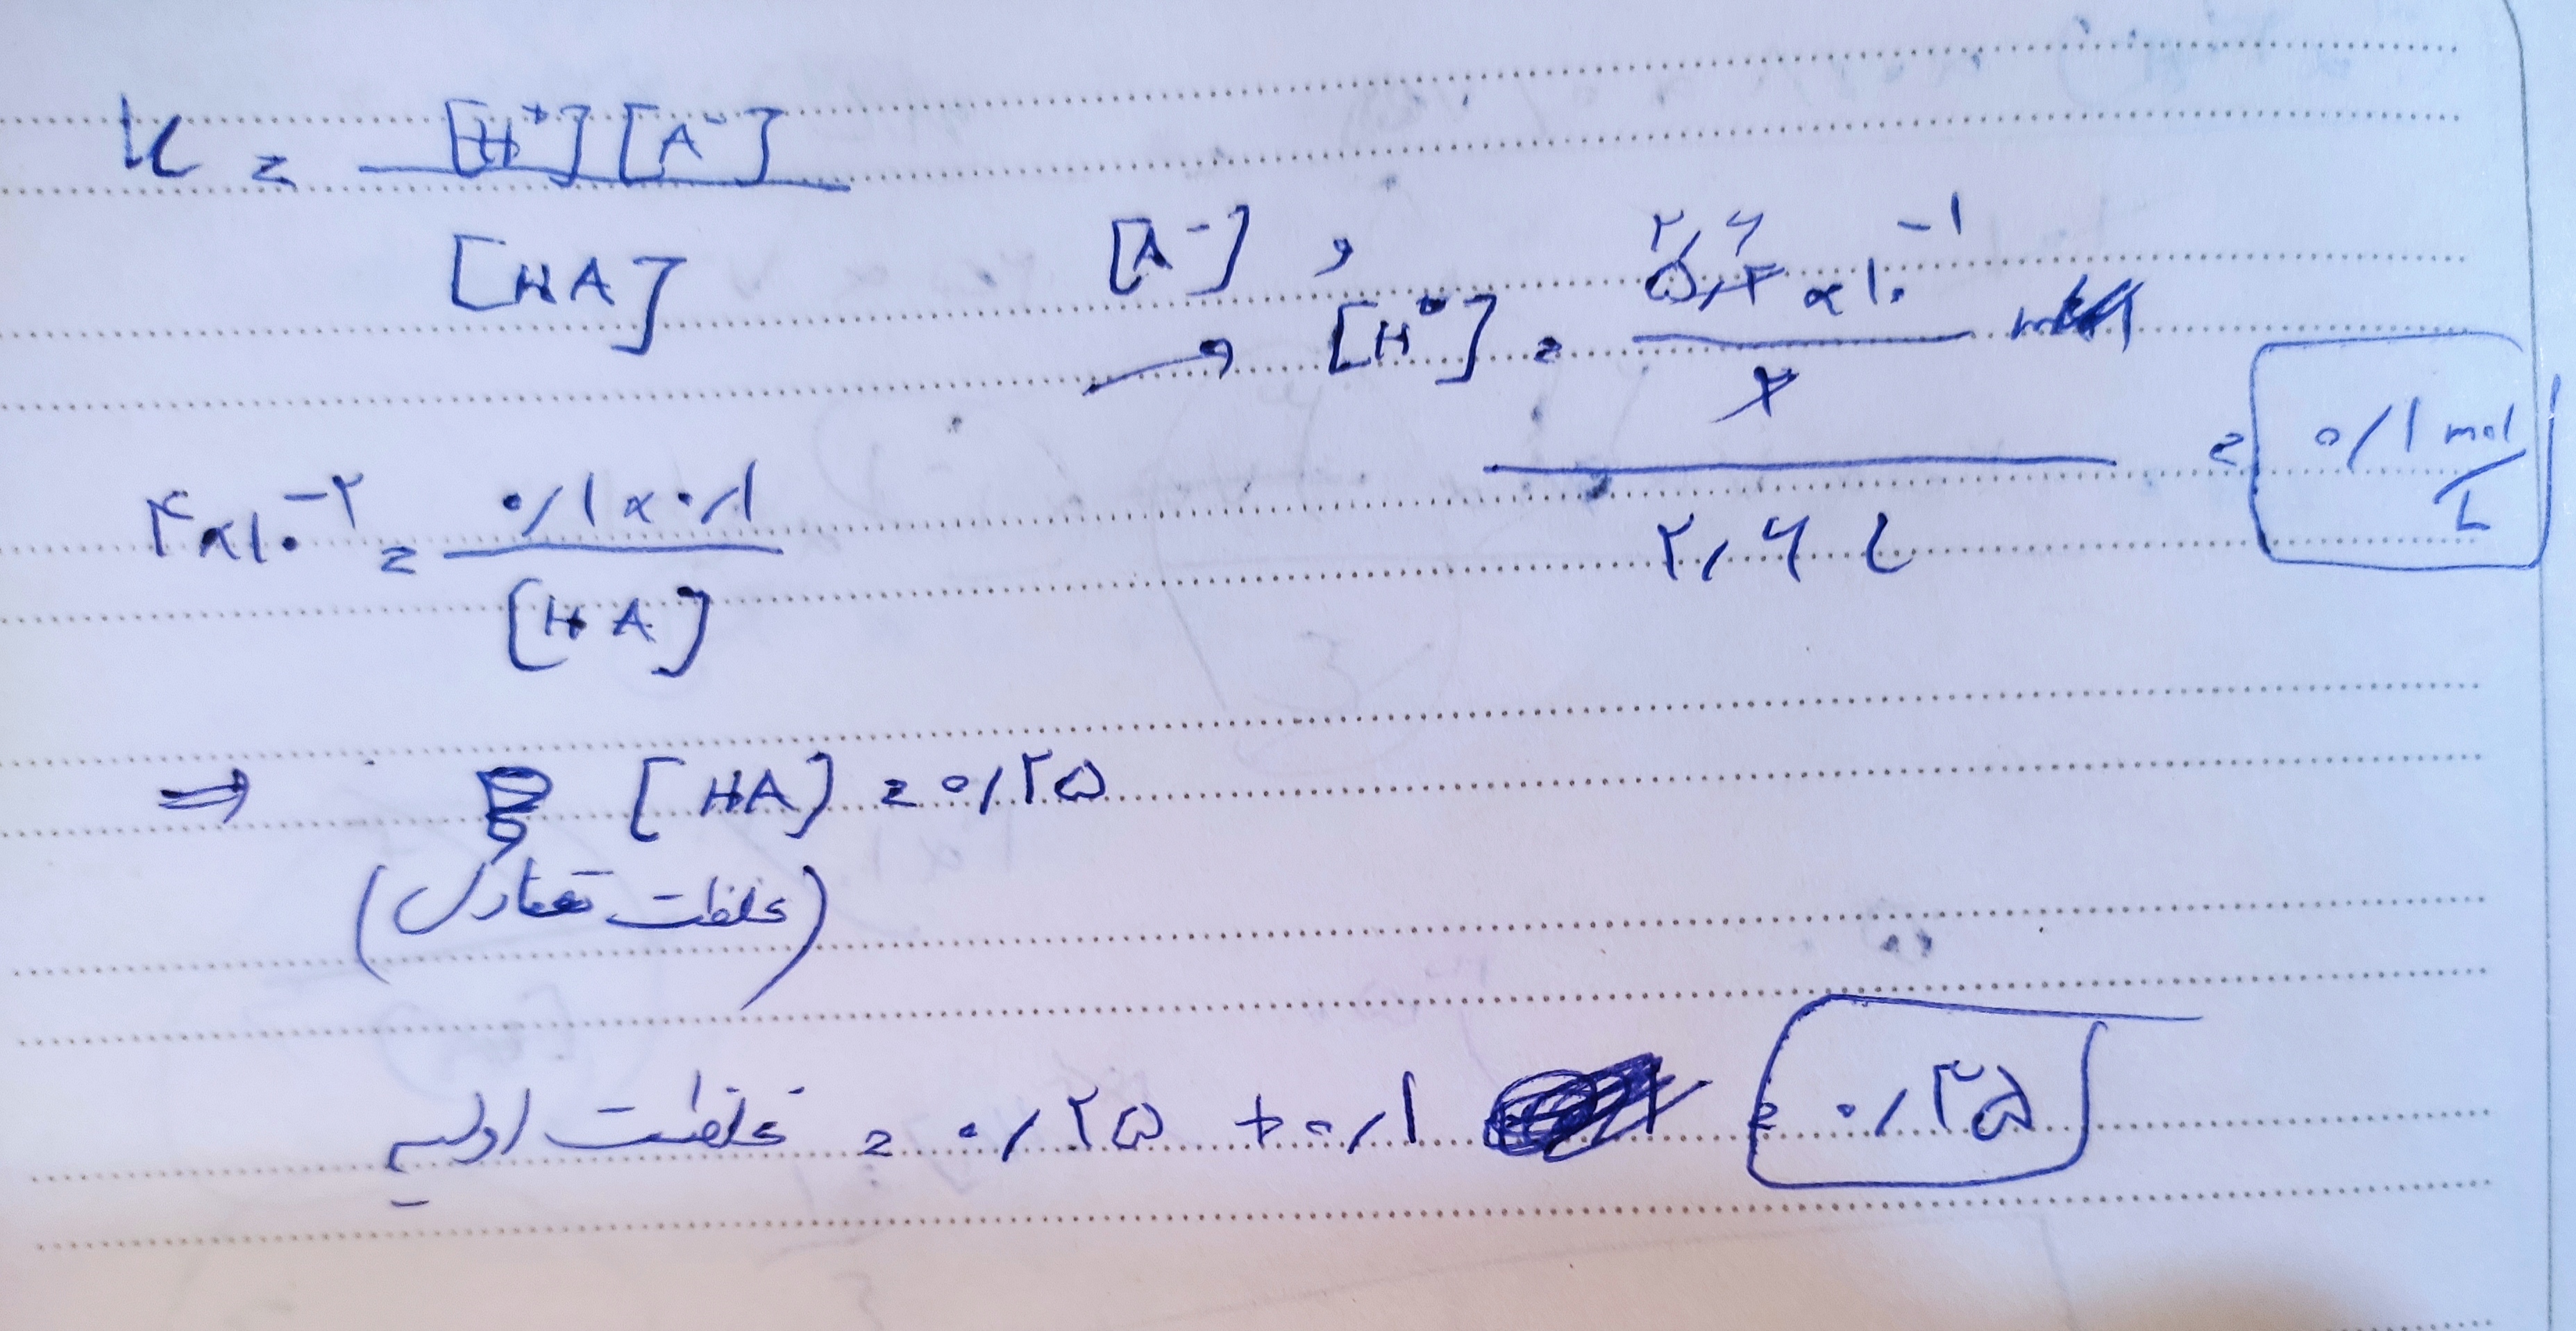 K = [H⁺][A⁻] / [HA]
[A⁻] , [H⁺] = ۵٫۲ × ۱۰⁻¹ / ۲ / ۲٫۶ L = ۰/۱ mol/L
۲٫۶
۴×۱۰⁻² = ۰/۱ × ۰/۱ / [HA]
⇒ [HA] = ۰/۲۵
(غلظت تعادل)
غلظت اولیه = ۰/۲۵ + ۰/۱ = ۰/۳۵